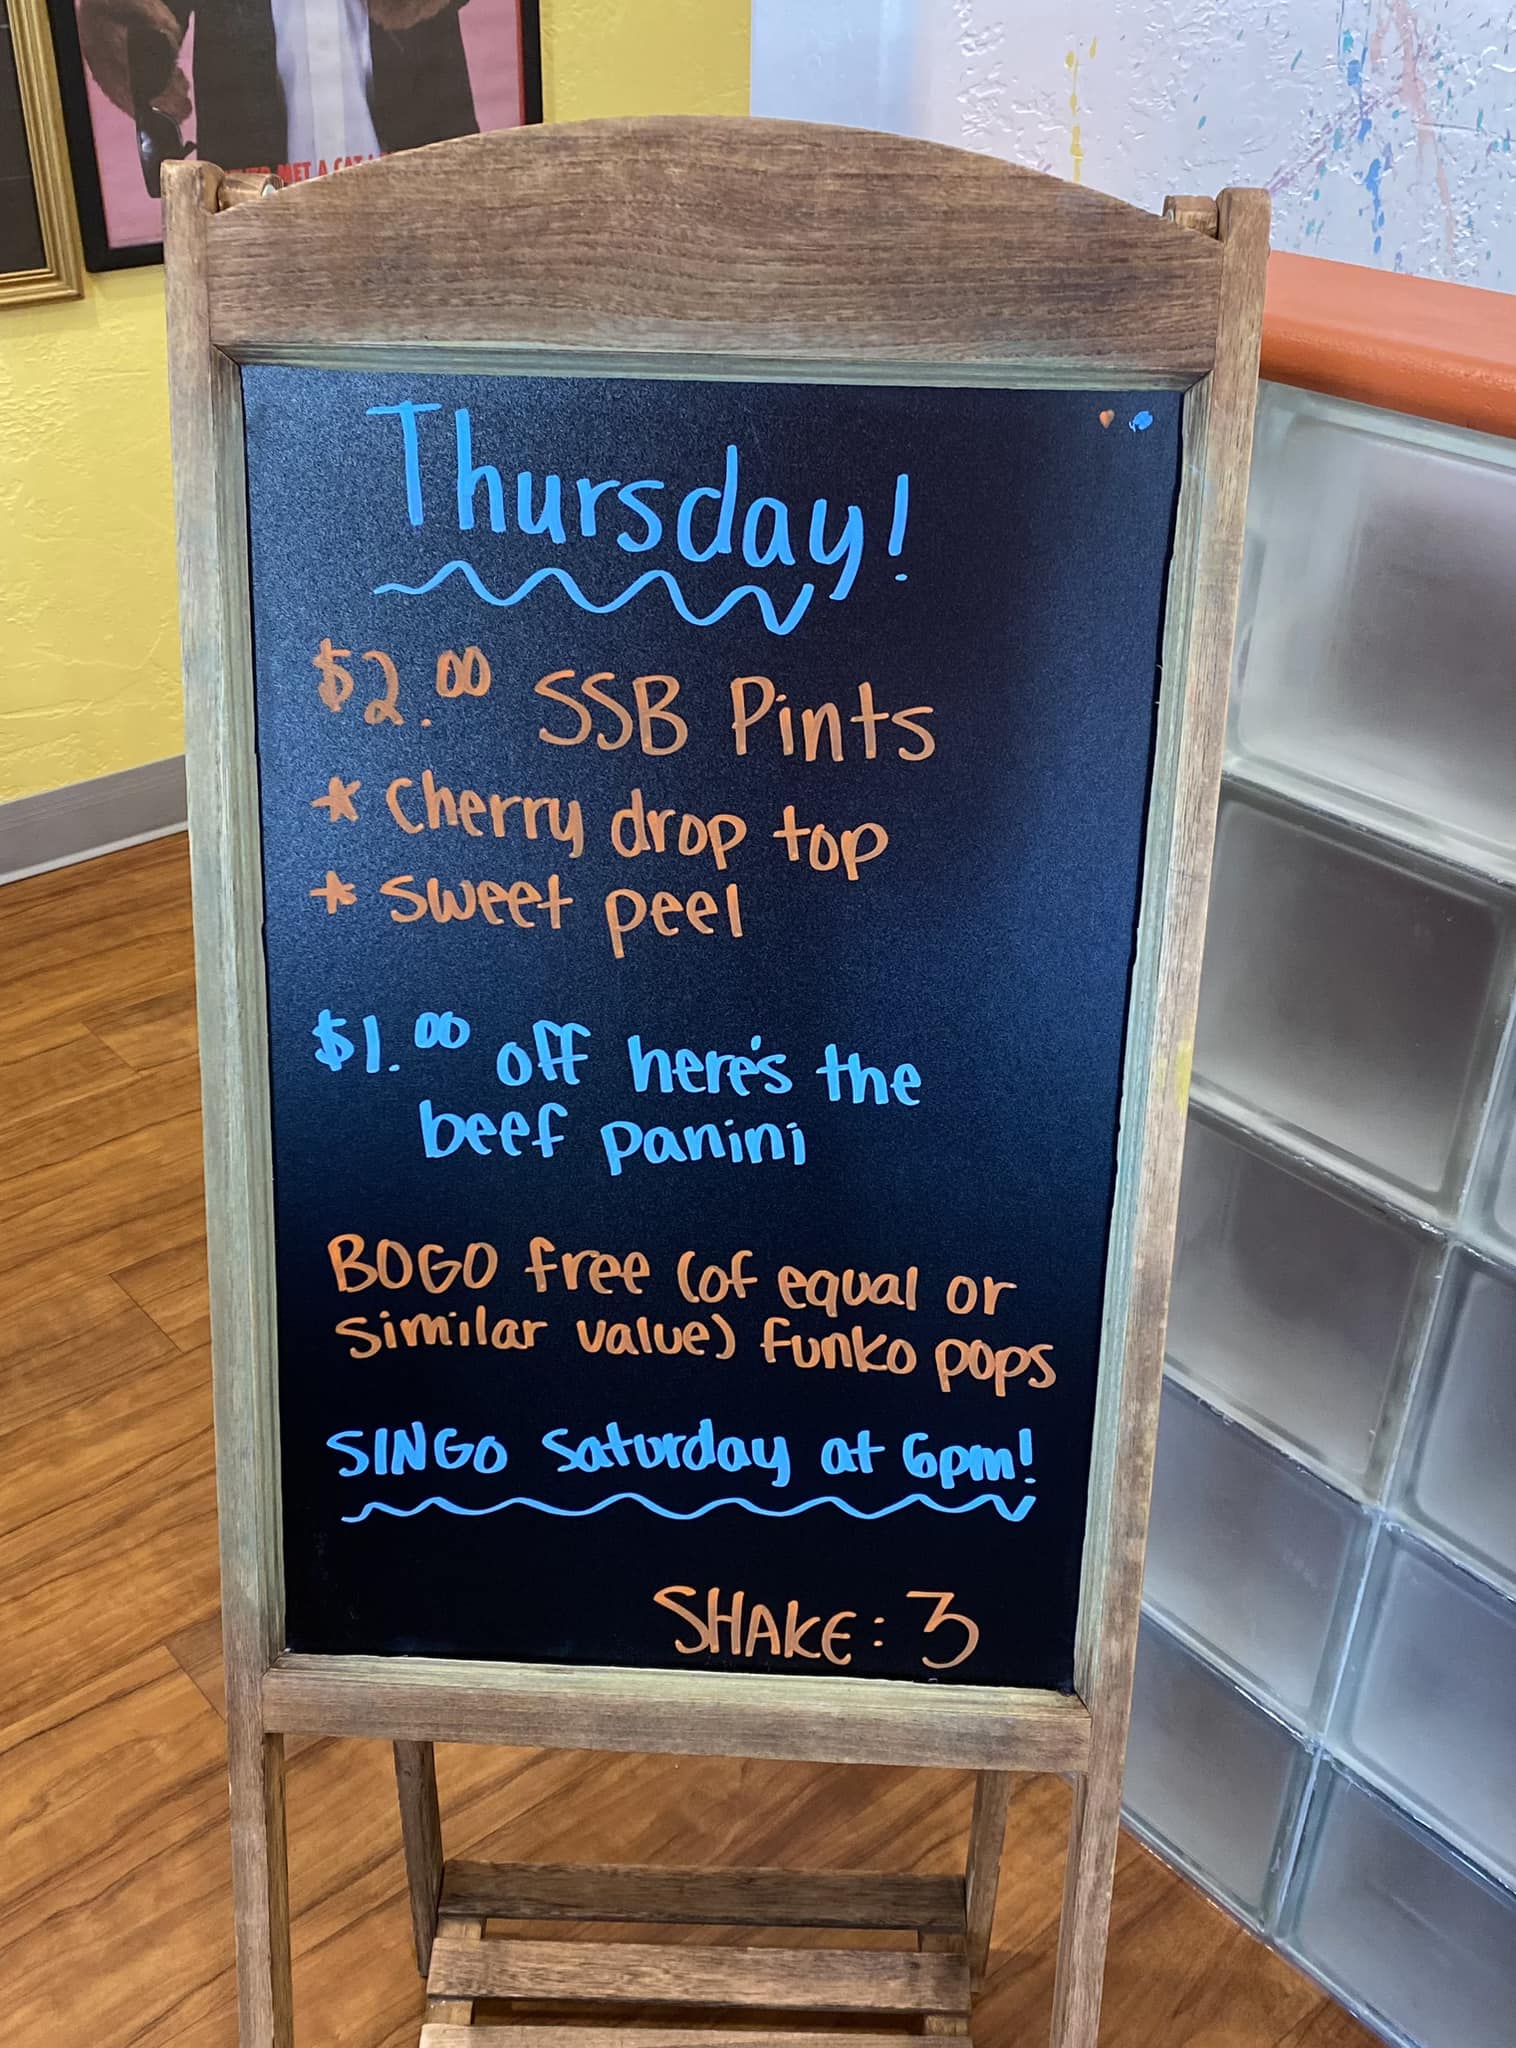 MET A CAT
Thursday!
$2.00 SSB Pints
* Cherry drop top
* Sweet peel
$1.00 off here's the
beef panini
BOGO free (of equal or
similar value) funko pops
SINGO Saturday at 6pm!
SHAKE: 3